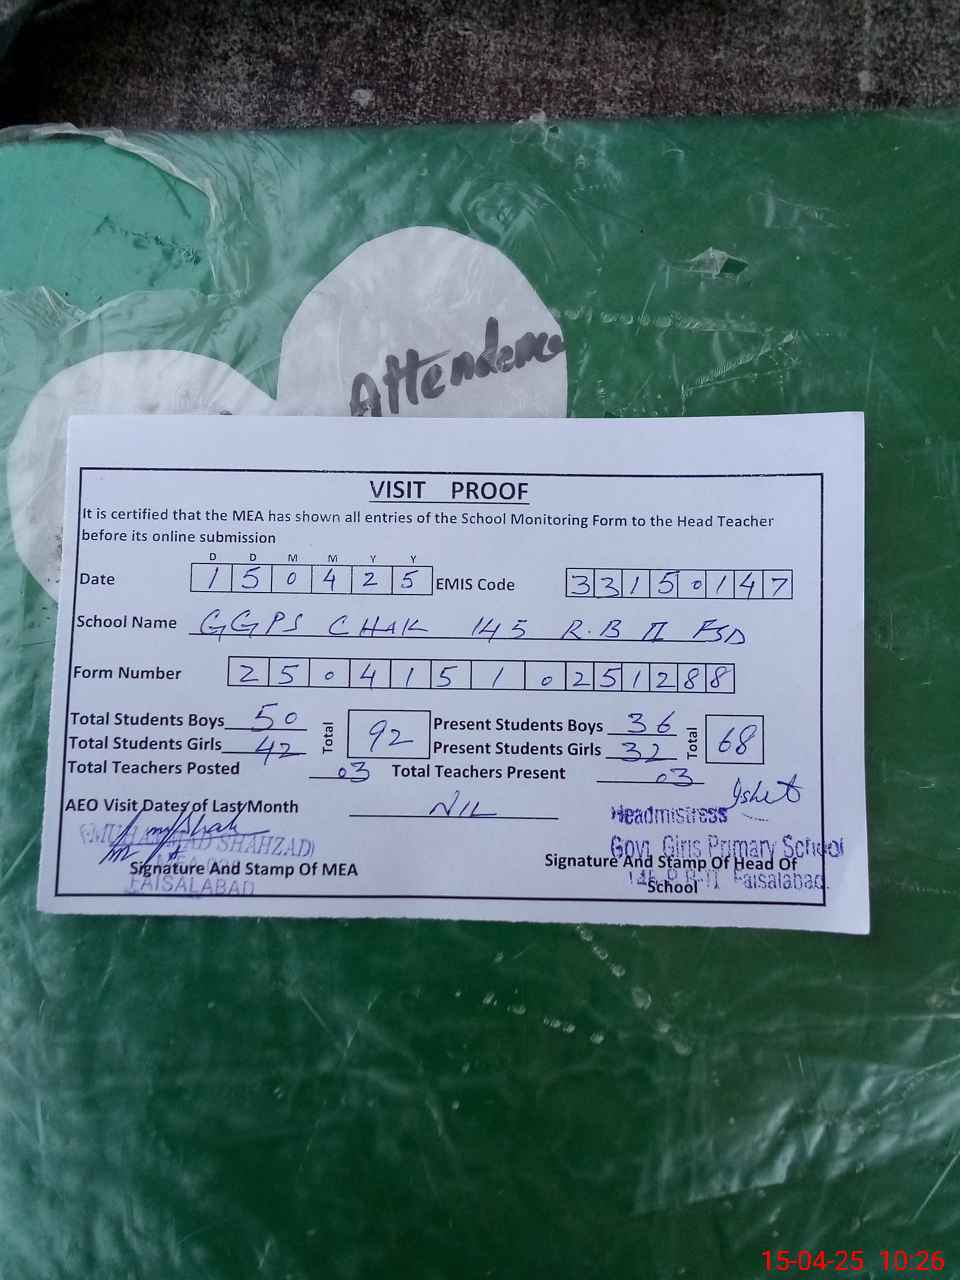 Attendence
VISIT PROOF
It is certified that the MEA has shown all entries of the School Monitoring Form to the Head Teacher
before its online submission
D D M M Y Y
Date 1 5 0 4 2 5 EMIS Code 3 3 1 5 0 1 4 7
School Name GGPS CHAK 145 R.B II FSD
Form Number 2 5 0 4 1 5 1 0 2 5 1 2 8 8
Total Students Boys 50 Total 92 Present Students Boys 36 Total 68
Total Students Girls 42 Present Students Girls 32
Total Teachers Posted 03 Total Teachers Present 03
AEO Visit Dates of Last Month NIL
Headmistress
(MUHAMMAD SHAHZAD) Govt. Girls Primary School
Signature And Stamp Of MEA Signature And Stamp Of Head Of
School
FAISALABAD Faisalabad.
15-04-25 10:26